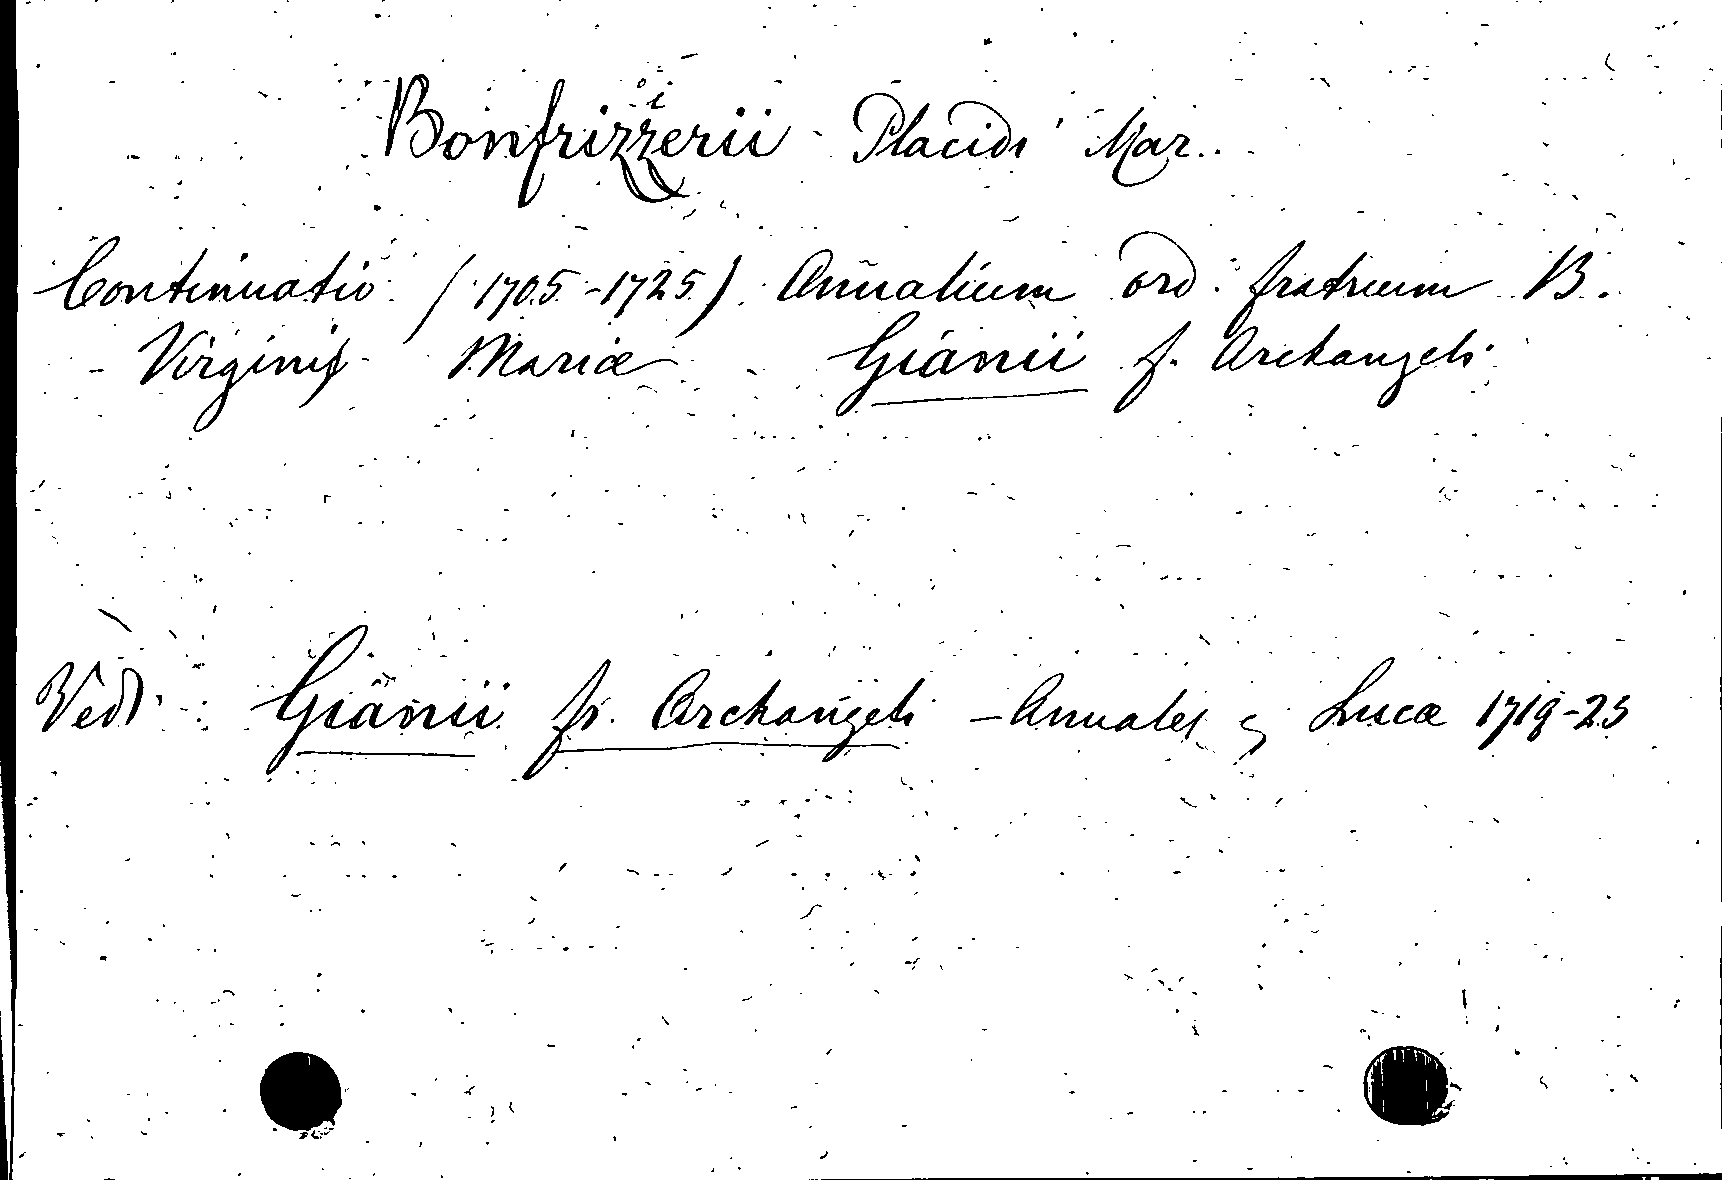 Bonfrizzierii Placidi Mar.
Continuatio (1705-1725) Annalium ord. fratrum B.
Virginis Mariæ Gianii f. Archangeli
Vedi Gianii fr. Archangeli - Annales Lucæ 1719-25